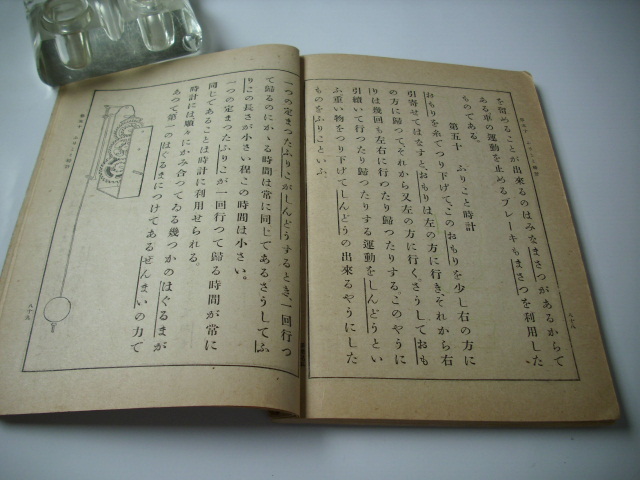 を留めることが出來るのはみなまさつがあるからで
ある車の運動を止めるブレーキもまさつを利用した
ものである。
第五十 ふりこと時計
おもりを糸でつり下げて、このおもりを少し右の方に
引寄せてはなすと、おもりは左の方に行き、それから右
の方に歸つて、それから又左の方に行く。さうしておも
りは幾回も左右に行つたり歸つたりする。このやうに
引續いて行つたり歸つたりする運動をしんどうとい
ふ。重い物をつり下げてしんどうの出來るやうにした
ものをふりこといふ。
一つの定まつたふりこがしんどうするとき、一回行つ
て歸るのにかゝる時間は常に同じである。さうしてふ
りこの長さが小さい程この時間は小さい。
一つの定まつたふりこが一回行つて歸る時間が常に
同じであることは時計に利用せられる。
時計には順々にかみ合つてゐる幾つかのはぐるまが
あつて第一のはぐるまにつけてあるぜんまいの力で
第五十 ふりこと時計